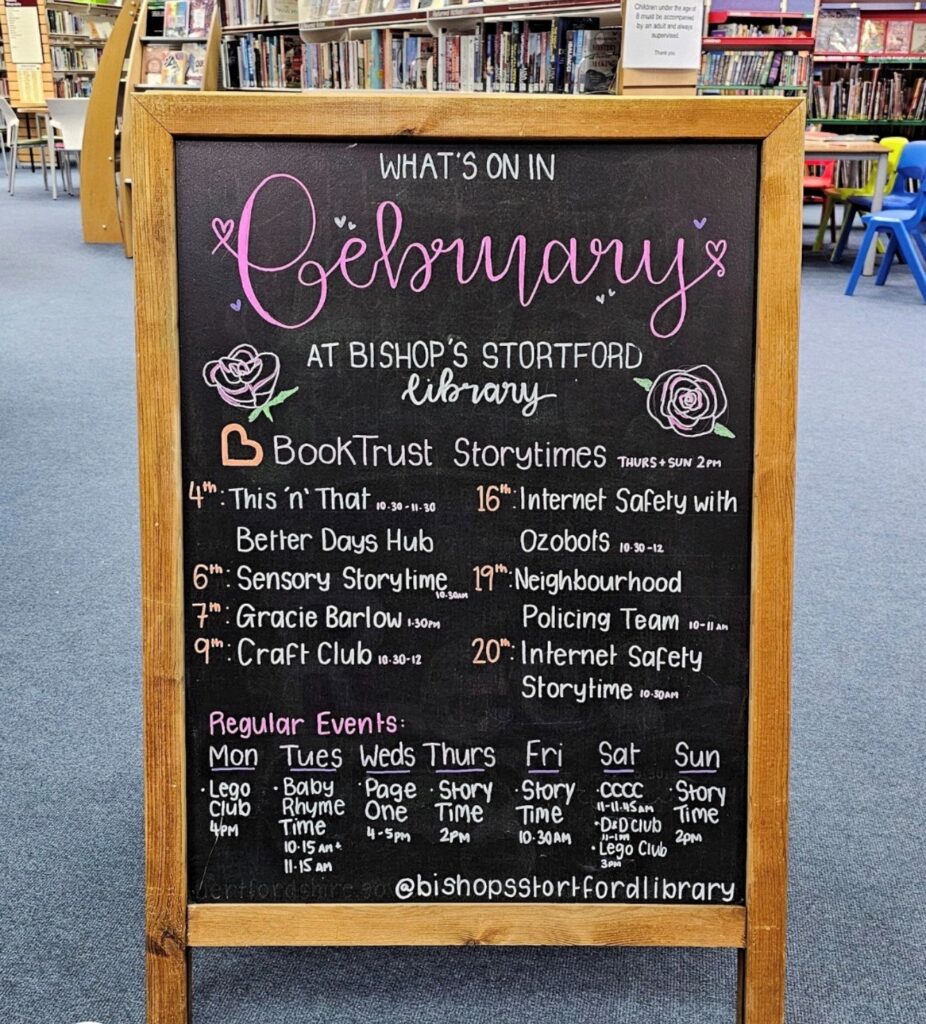 Children under the age of
8 must be accompanied
by an adult and always
supervised.
Thank you
WHAT'S ON IN
February
AT BISHOP'S STORTFORD
library
BookTrust Storytimes THURS + SUN 2PM
4th: This 'n' That 10.30-11.30
Better Days Hub
6th: Sensory Storytime 10.30AM
7th: Gracie Barlow 1.30PM
9th: Craft Club 10.30-12
16th: Internet Safety with
Ozobots 10.30-12
19th: Neighbourhood
Policing Team 10-11AM
20th: Internet Safety
Storytime 10.30AM
Regular Events:
Mon
• Lego
Club
4PM
Tues
• Baby
Rhyme
Time
10.15AM +
11.15AM
Weds
• Page
One
4-5PM
Thurs
• Story
Time
2PM
Fri
• Story
Time
10.30AM
Sat
• CCCC
11-11.45AM
• D&D CLUB
11-1PM
• Lego Club
3PM
Sun
• Story
Time
2PM
@bishopsstortfordlibrary